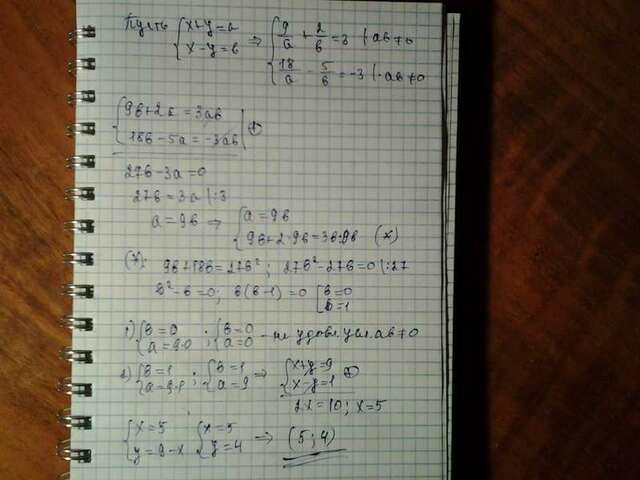 Пусть { x+y=a x-y=b ⇒ { 9/a + 2/b = 3 |·ab≠0
18/a - 5/b = -3 |·ab≠0
{ 9b+2a = 3ab
18b-5a = -3ab | ⊕
27b-3a=0
27b=3a |:3
a=9b ⇒ { a=9b
9b+2·9b=3b·9b (*)
(*): 9b+18b=27b²; 27b²-27b=0 |:27
b²-b=0; b(b-1)=0 [ b=0 b=1
1) { b=0 a=9·0 ; { b=0 a=0 - не удовл. усл. ab≠0
2) { b=1 a=9·1 ; { b=1 a=9 ⇒ { x+y=9 x-y=1 ⊕
2x=10; x=5
{ x=5 y=9-x { x=5 y=4 ⇒ (5;4)